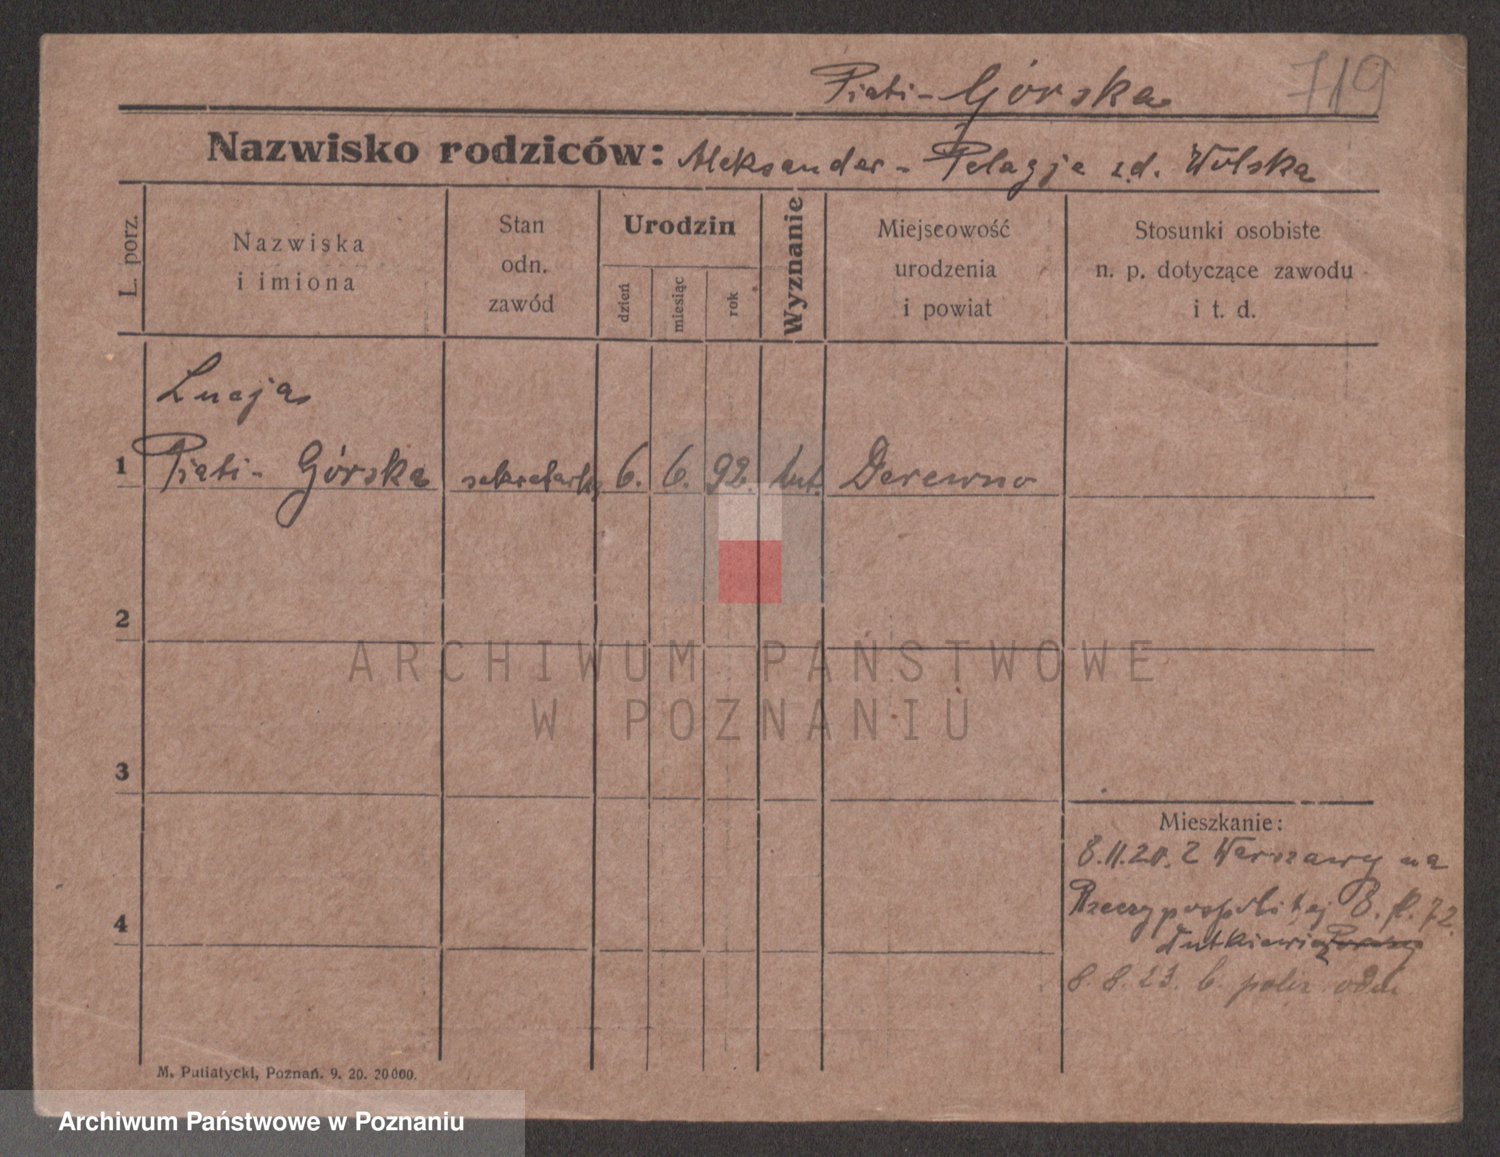 Piati-Górska 719
Nazwisko rodziców: Aleksander - Pelagja zd. Wolska
L. porz.
Nazwiska
i imiona
Stan
odn.
zawód
Urodzin
dzień
miesiąc
rok
Wyznanie
Miejscowość
urodzenia
i powiat
Stosunki osobiste
n. p. dotyczące zawodu
i t. d.
Lucja
1 Piati-Górska sekretarka 6. 6. 92. lut. Derewno
2
3
4
Mieszkanie:
8.11.20. z Warszawy na
Rzeczypospolitej 8. p. 72
Dutkiewicz
8.8.23. b. polic odm
M. Putiatycki, Poznań. 9. 20. 20000.
ARCHIWUM PAŃSTWOWE
W POZNANIU
Archiwum Państwowe w Poznaniu